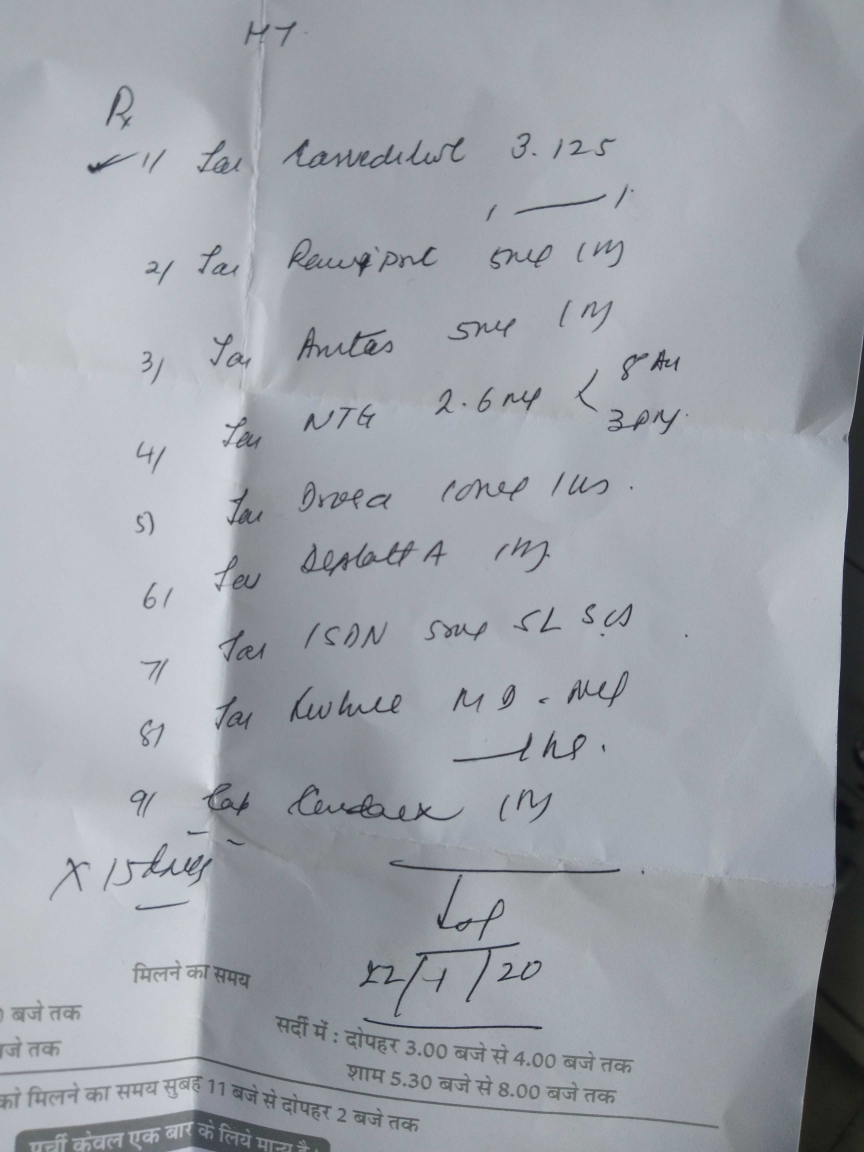 HT
Rx
1/ Tab Carvedilol 3.125
1 — 1
2/ Tab Ramipril 5mg 1 M
3/ Tab 5mg 1 M
4/ Tab NTG 2.6 mg < 8 AM
3 PM
5) Tab 10mg 1 HS
6/ Tab Deplatt A 1 M
7/ Tab ISDN 5mg SL SOS
8/ Tab MD
9/ Cap 1 M
X 15 days
22/1/20
मिलने का समय
बजे तक
सर्दी में : दोपहर 3.00 बजे से 4.00 बजे तक
शाम 5.30 बजे से 8.00 बजे तक
मिलने का समय सुबह 11 बजे से दोपहर 2 बजे तक
पर्ची केवल एक बार के लिये मान्य है